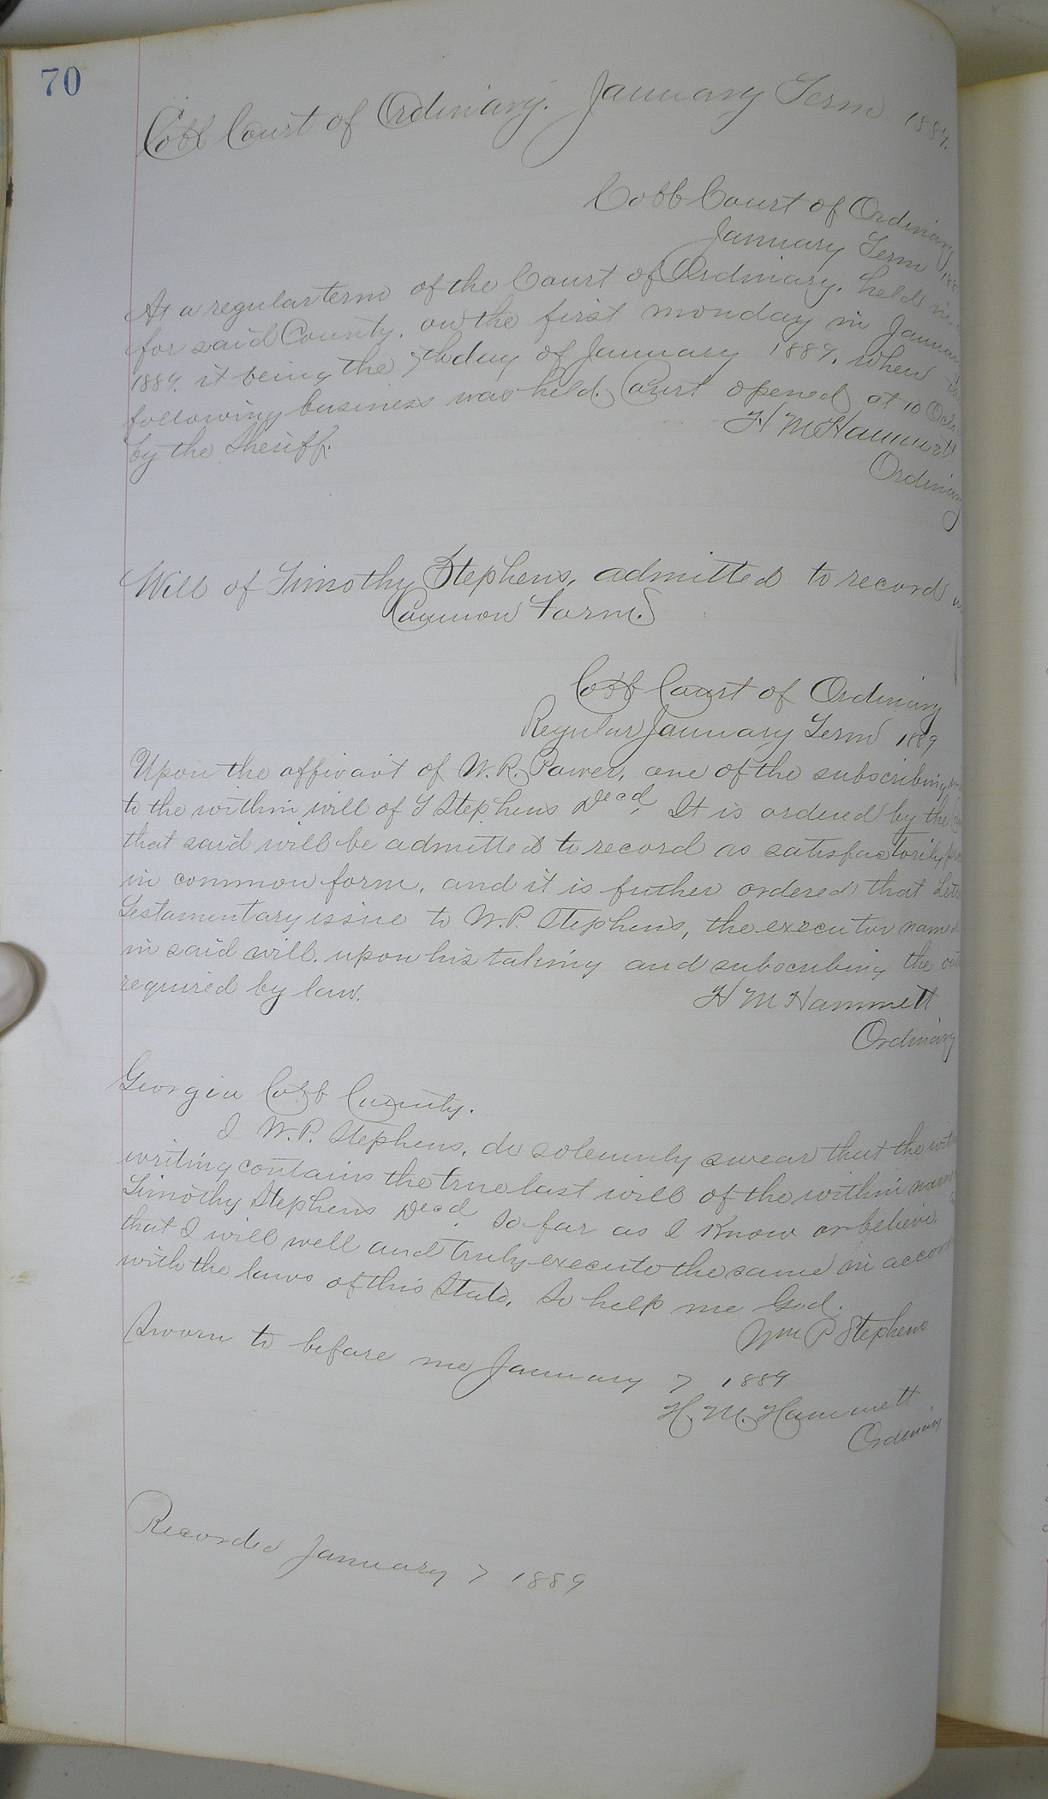 70
Cobb Court of Ordinary. January Term 1889.
Cobb Court of Ordinary
January Term 188
At a regular term of the Court of Ordinary, held in
for said County, on the first monday in January
1889. it being the 7th day of January 1889, when
following business was held. Court opened at 10 Oclo
by the Sheriff.
H M Hammett
Ordinary
Will of Timothy Stephens, admitted to record
Common Form.
Cobb Court of Ordinary
Regular January Term 1889
Upon the affivavt of W. R. Power, one of the subscribing
to the within will of T Stephens Decd. It is ordered by the
that said will be admitted to record as satisfactorily
in common form, and it is futher ordered that Lett
Testamentary issue to W. P. Stephens, the executor named
in said will. upon his taking and subscribing the oat
required by law.
H M Hammett
Ordinary
Georgia Cobb County.
I W. P. Stephens, do solemnly swear that the with
writing contains the true last will of the within named
Timothy Stephens Decd. So far as I know or believe
that I will well and truly execute the same in accor
with the laws of this State. So help me God.
Wm P Stephens
Sworn to before me January 7 1889
H. M. Hammett
Ordinary
Recorded January 7 1889